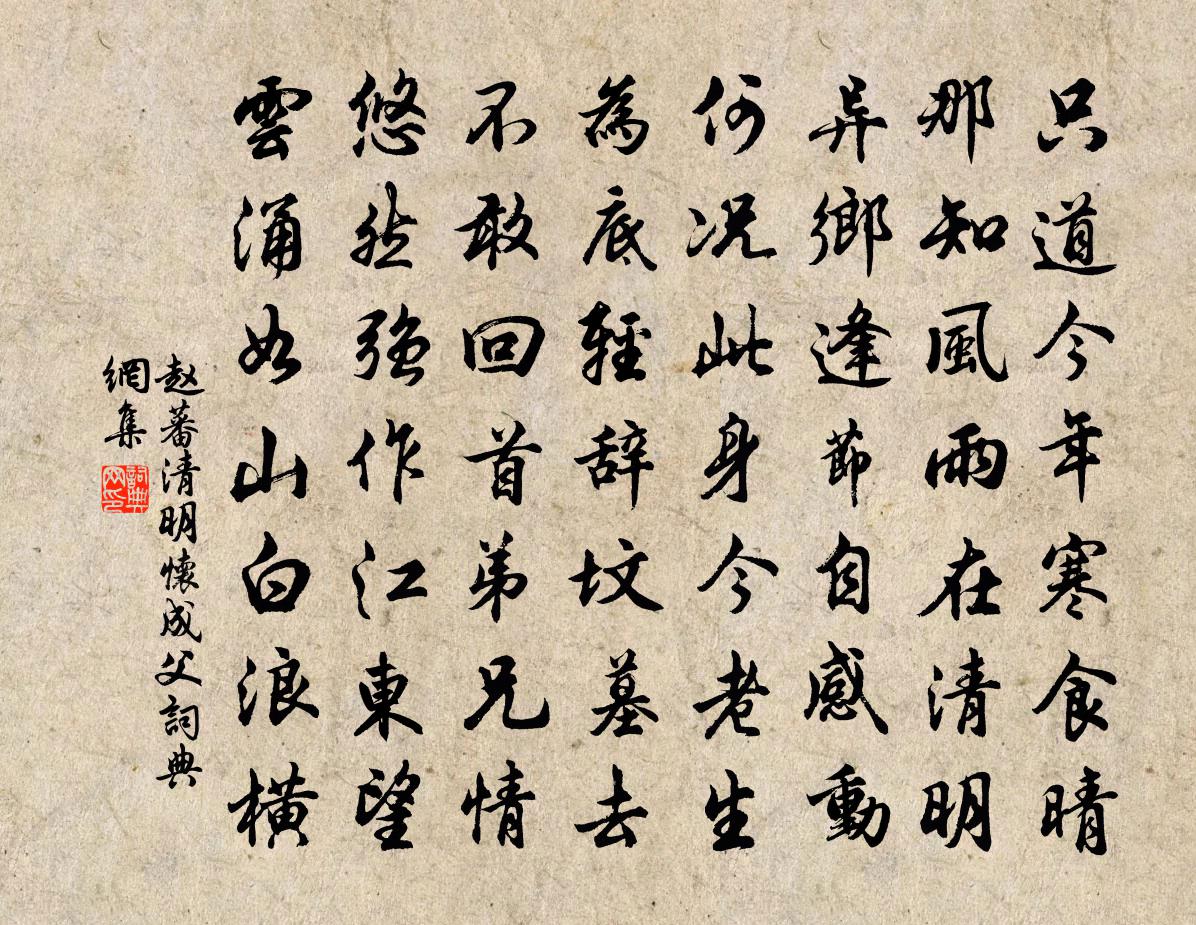 只道今年寒食晴
那知風雨在清明
异鄉逢節自感動
何況此身今老生
為底輕辞坟墓去
不敢回首弟兄情
悠然強作江東望
雲涌如山白浪橫
赵蕃清明懷成父詞典
網集
詞典
网印